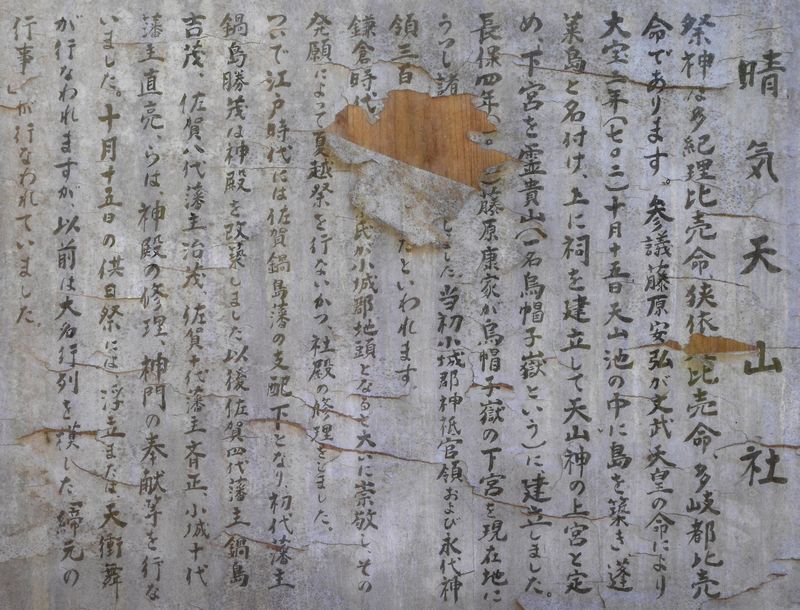 晴気天山社
祭神は多紀理比売命、狭依 比売命、多岐都比売
命であります。参議藤原安弘が文武天皇の命により
大宝二年(七〇二)十月十五日天山池の中に島を築き、蓬
莱島と名付け、上に祠を建立して天山神の上宮と定
め、下宮を霊貴山(一名烏帽子嶽という)に建立しました。
長保四年(一〇 )藤原康家が烏帽子嶽の下宮を現在地に
うつし諸 しました当初小城郡神祇官領および永代神
領三百 たといわれます
鎌倉時代 氏が小城郡地頭となるや大いに崇敬し、その
発願によって夏越祭を行ないかつ、社殿の修理をしました。
ついで江戸時代には佐賀鍋島藩の支配下となり初代藩主
鍋島勝茂は神殿を改築しました以後佐賀四代藩主鍋島
吉茂、佐賀八代藩主治茂、佐賀十代藩主斉正、小城十代
藩主直亮、らは神殿の修理、神門の奉献等を行な
いました。十月十五日の供日祭には浮立または天衝舞
が行なわれますが、以前は大名行列を模した「締元の
行事」が行なわれていました。